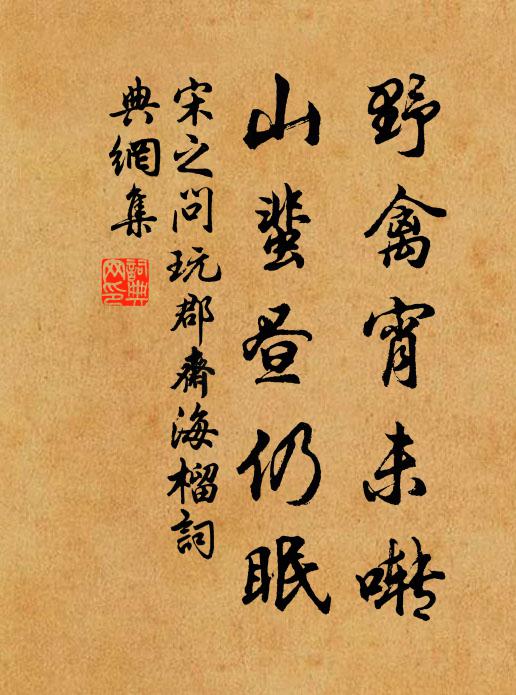 野禽宵未啭
山蜚昼仍眠
宋之问玩郡斋海榴词
典網集
詞典网印